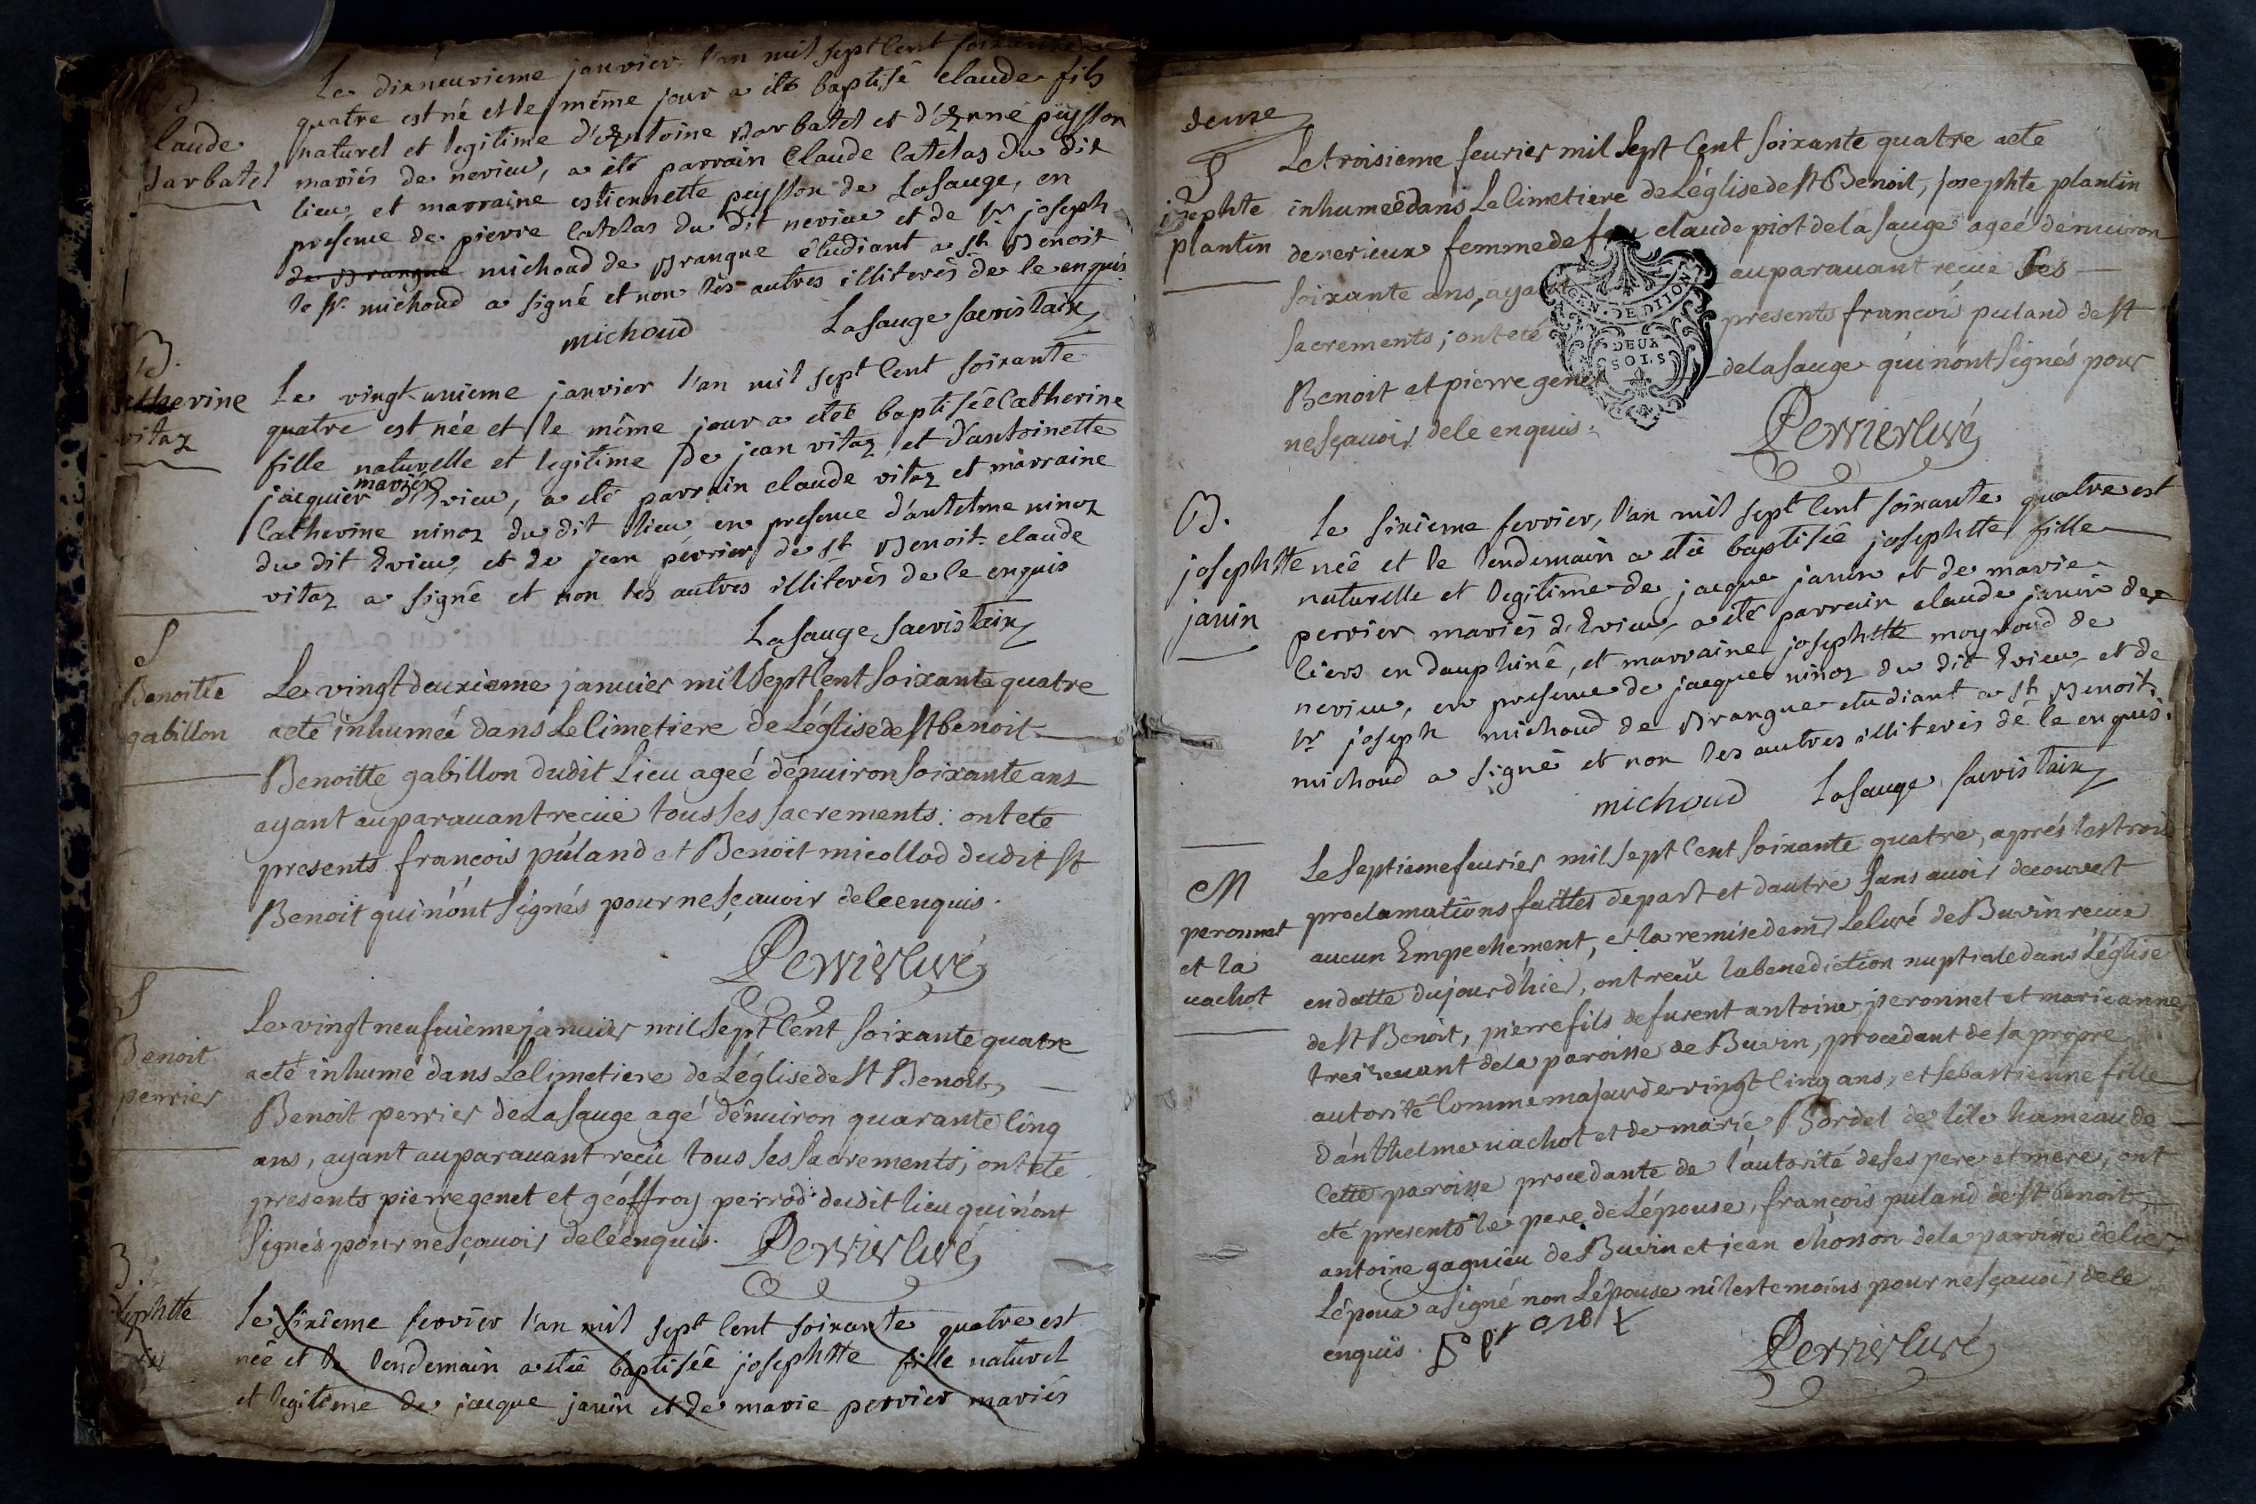 Le dixneuvieme janvier l'an mil sept Cent soixante
quatre est né et le même jour a été baptisé claude fils
laude
naturel et legitime d'Antoine Barbatel et d'Anne puysson
barbatel
mariés de nerieu, a été parrain Claude Catelas du dit
lieu, et marraine estiennette puysson de Lasauge, en
presence de pierre Catelas du dit nerieu et de Sr joseph
de Brangue michoud de Brangue étudiant a St Benoit
le Sr michoud a signé et non les autres illiterés de le enquis
michoud Lasauge sacristain
B.
therine
vitoz
Le vingt-unieme janvier l'an mil sept Cent soixante
quatre est née et le même jour a été baptisée Catherine
fille naturelle et legitime de jean vitoz et d'antoinette
jacquier mariés d'Evieu, a été parrain claude vitoz et marraine
Catherine ninoz du dit lieu en presence d'antelme ninoz
du dit Evieu, et de jean perrier de St Benoit. claude
vitoz a signé et non les autres illiterés de le enquis
Lasauge sacristain
S
Benoitte
gabillon
Le vingt deuxieme januier mil Sept Cent Soixante quatre
a eté inhumeé dans Le Cimetiere de L'église de St benoit
Benoitte gabillon dudit Lieu ageé d'enuiron soixante ans
ayant auparauant recüe tous ses sacrements: ont eté
presents françois puland et Benoit micollod dudit St
Benoit qui n'ont signés pour ne sçauoir de le enquis.
Perrier Curé
S
Benoit
perrier
Le vingt neufuieme januier mil Sept Cent Soixante quatre
a eté inhumé dans Le Cimetiere de L'église de St Benoit,
Benoit perrier de Lasauge agé d'enuiron quarante Cinq
ans, ayant auparauant reçu tous ses sacrements; ont eté
presents pierre genet et géoffroy perrod dudit lieu qui n'ont
signés pour ne sçauoir de le enquis. Perrier Curé
B.
josephtte
Le sixieme fevrier l'an mil sept Cent soixante quatre est
née et le lendemain a été baptisée josephtte fille naturel
et legitime de jacque janin et de marie perrier mariés
deuxe
S
josephte
plantin
Le troisieme feurier mil Sept Cent Soixante quatre a eté
inhumeé dans Le Cimetiere de L'église de St Benoit, josephte plantin
de nerieux femme de feu claude piot de la sauge ageé d'enuiron
soixante ans, ayant auparauant reçue ses
sacrements; ont eté presents francois puland de St
Benoit et pierre genet de la sauge qui n'ont signés pour
ne sçauoir de le enquis.
GEN. DE DIJON
DEUX
SOLS
Perrier Curé
B.
josephtte
janin
Le sixieme fevrier, l'an mil sept Cent soixante quatre est
née et le lendemain a été baptisée josephtte fille
naturelle et legitime de jacque janin et de marie
perrier mariés d'Evieu, a été parrain claude janin de
Ciers en dauphiné, et marraine josephtte moyroud de
nerieu, en presence de jacque ninoz du dit Evieu, et de
Sr joseph michoud de Brangue etudiant a St Benoit.
michoud a signé et non les autres illiterés de le enquis.
michoud Lasauge sacristain
M
peronnet
et la
uachot
Le Septieme feurier mil sept Cent soixante quatre, aprés les trois
proclamations faittes de part et dautre sans auoir decouvert
aucun Empechement, et la remise de mr Le Curé de Buvin recue
en datte du jour d'hier, ont recu la benediction nuptiale dans L'église
de St Benoit, pierre fils de furent antoine peronnet et marieanne
treineuant de la paroisse de Buvin, procedant de sa propre
autorité Comme majeur de vingt Cinq ans, et sebastienne fille
d'anthelme uachot et de marie Bordel de l'ile hameau de
Cette paroisse procedante de l'autorité de ses pere et mere, ont
eté presents le pere de L'épouse, françois puland de St benoit,
antoine gagnieu de Buvin et jean chosson de la paroisse de Cier,
L'époux a signé non L'épouse ni les temoins pour ne sçauoir de le
enquis.
Perrier Curé